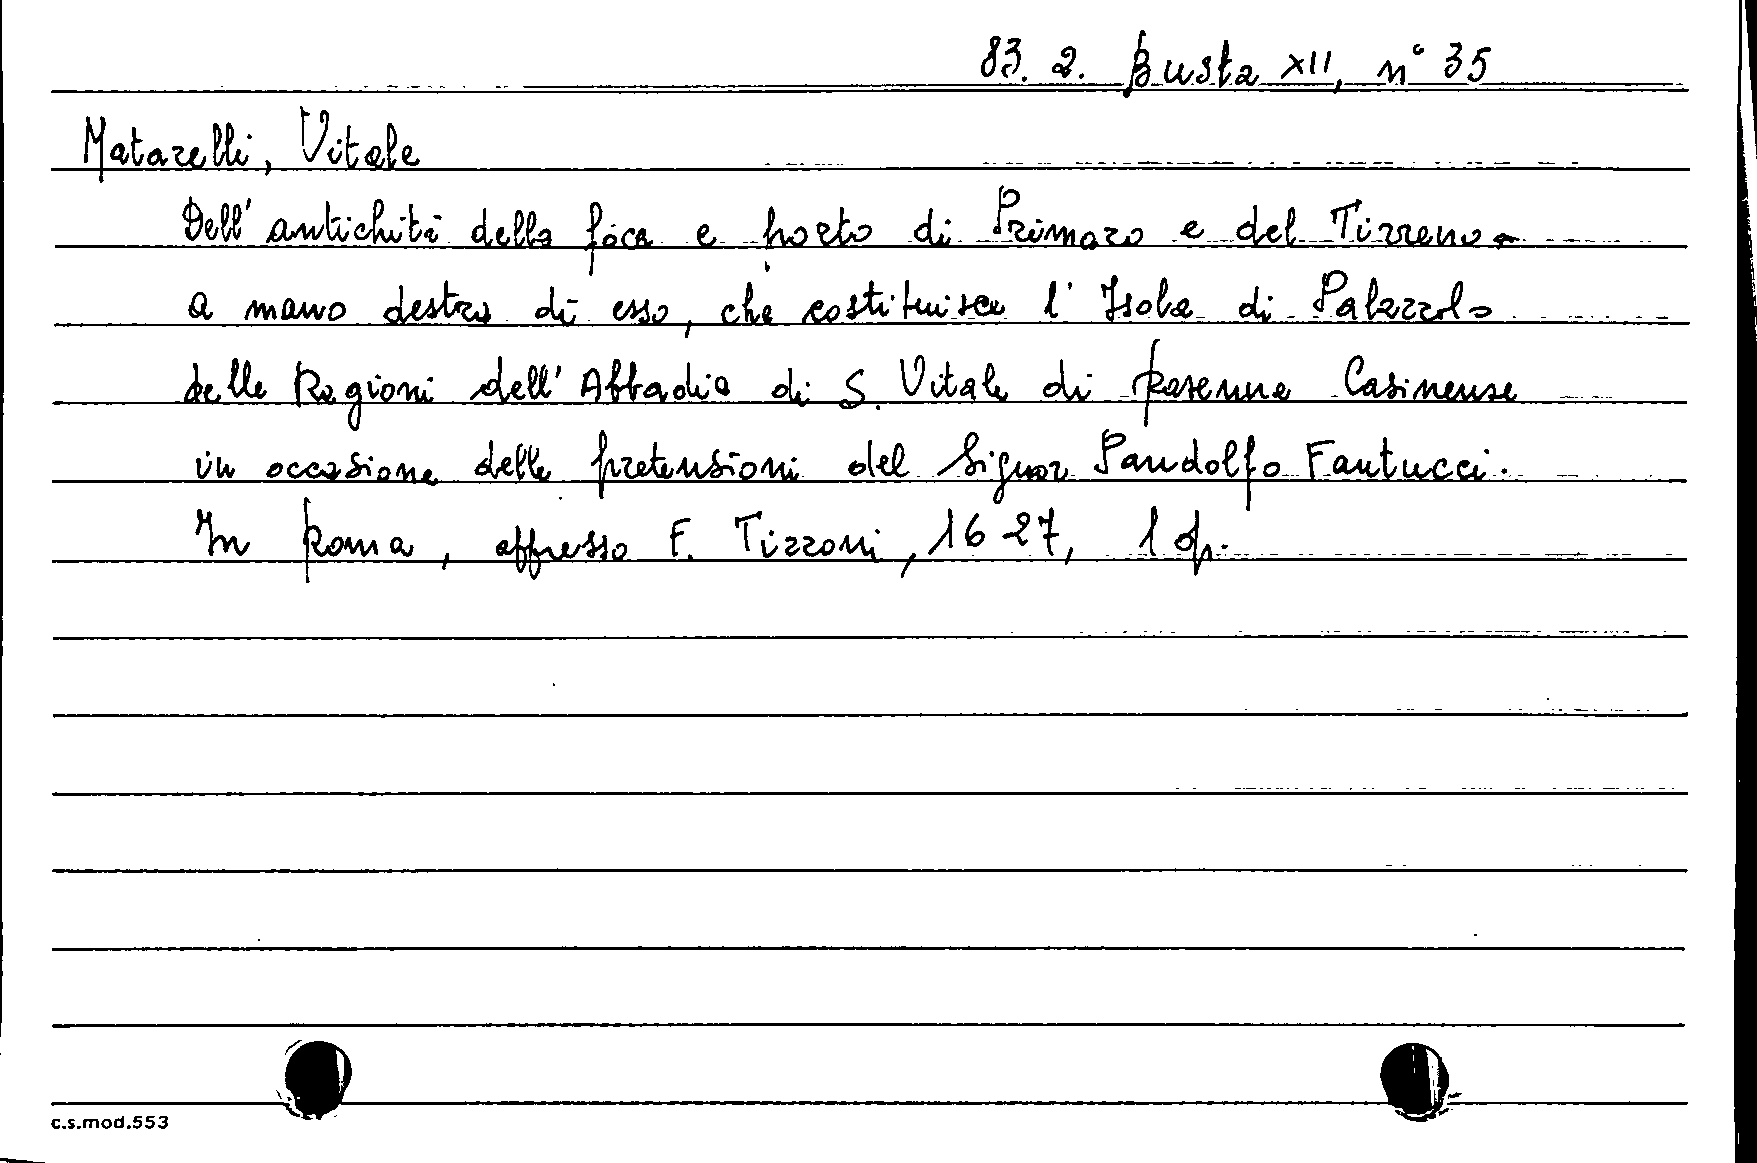 83. 2. Busta XII, n° 35
Matarelli, Vitale
Dell' antichità della foce e porto di Primaro e del Tirreno
a mano destra di esso, che costituisce l' Isola di Palazzolo
delle Ragioni dell' Abbadia di S. Vitale di Ravenna Casinense
in occasione delle pretensioni del Signor Pandolfo Fantucci.
In Roma, appresso F. Tizzoni, 1627, 1 op.
c.s.mod.553